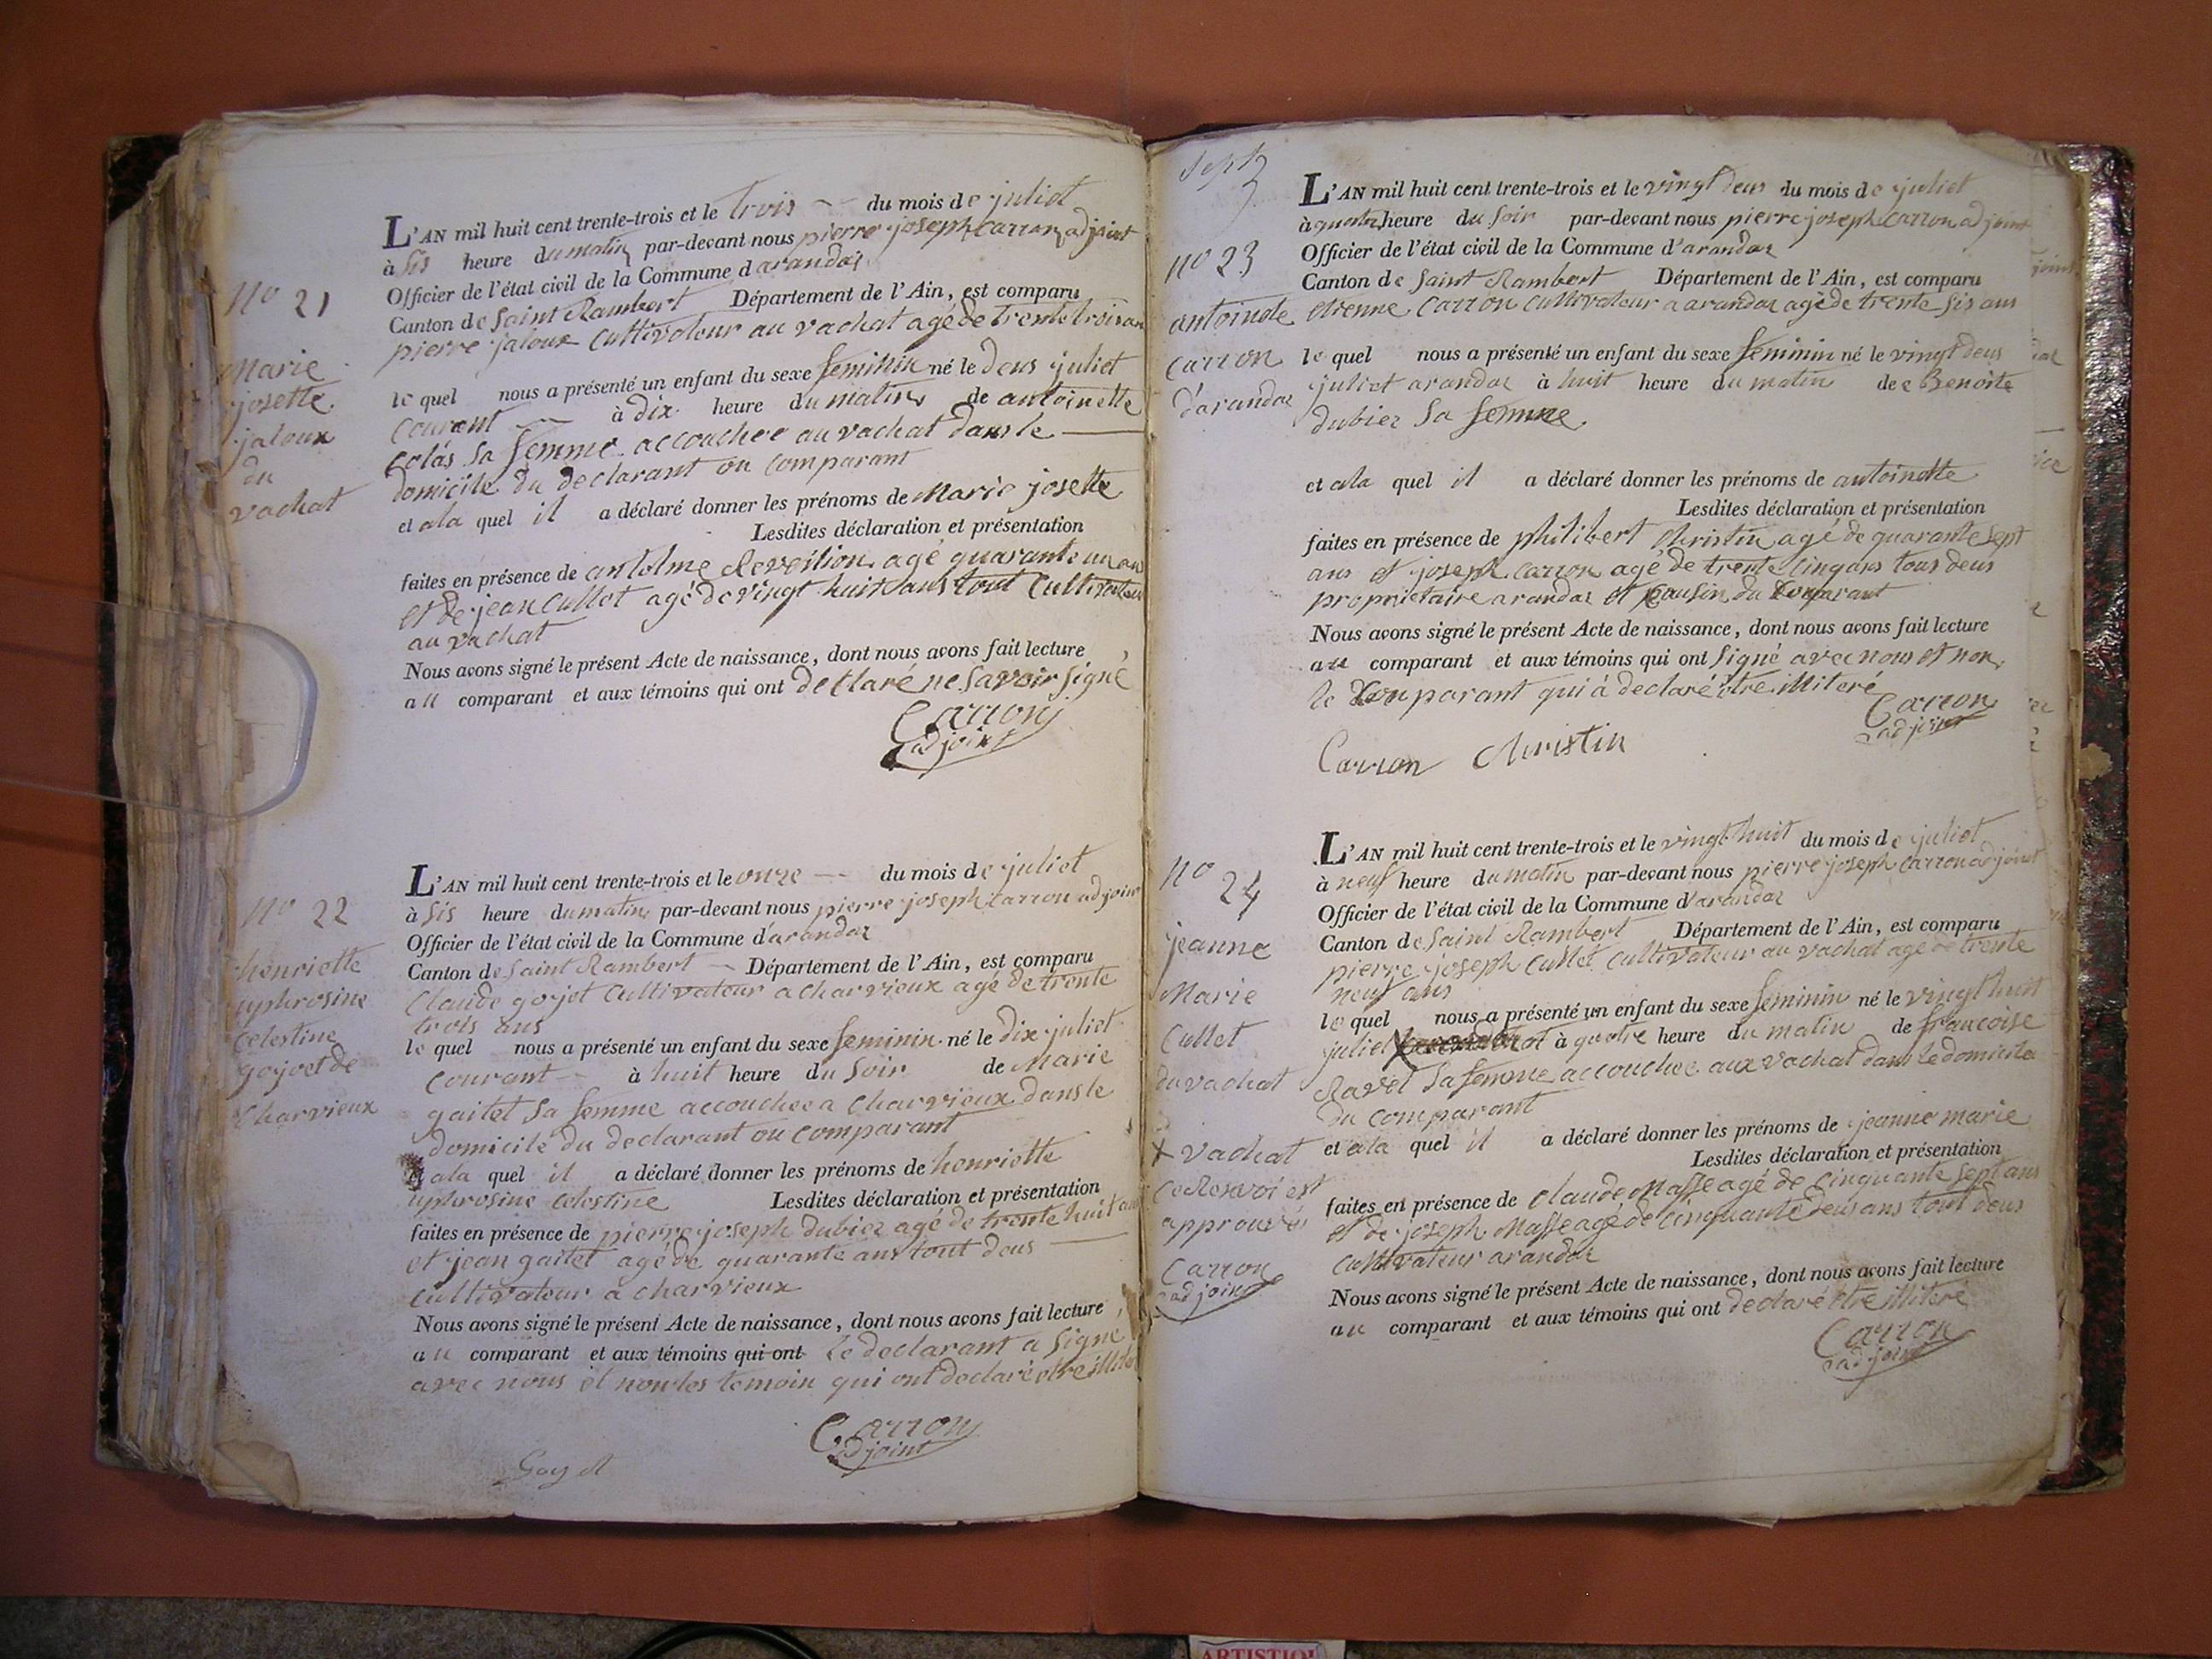 L'AN mil huit cent trente-trois et le trois du mois de juliet
à sis heure du matin par-devant nous pierre joseph carron adjoint
Officier de l'état civil de la Commune d'arandas
Canton de Saint Rambert Département de l'Ain, est comparu
pierre jaloux Cultivateur au vachat agé de trente trois ans
le quel nous a présenté un enfant du sexe feminin né le deus juliet
Courant à dix heure du matin de antoinette
Colas sa femme accouchee au vachat dans le
domicile du declarant ou Comparant
et ala quel il a déclaré donner les prénoms de Marie josette
Lesdites déclaration et présentation
faites en présence de antelme agé quarante un an
et de jean Cullet agé de vingt huit ans tout Cultivateur
au vachat
Nous avons signé le présent Acte de naissance, dont nous avons fait lecture
au comparant et aux témoins qui ont declaré ne savoir signé
Carron
adjoint
no 21
Marie
josette
jaloux
du
vachat
L'AN mil huit cent trente-trois et le onze du mois de juliet
à sis heure du matin par-devant nous pierre joseph carron adjoint
Officier de l'état civil de la Commune d'arandaz
Canton de Saint Rambert Département de l'Ain, est comparu
Claude gojet Cultivateur a charvieux agé de trente
trois ans
le quel nous a présenté un enfant du sexe feminin né le dix juliet
Courant à huit heure du soir de Marie
gaitet sa femme accouchee a Charvieux dans le
domicile du declarant ou comparant
et ala quel il a déclaré donner les prénoms de henriette
uphrosine Celestine Lesdites déclaration et présentation
faites en présence de pierre joseph dubiez agé de trente huit ans
et jean gaitet agé de quarante ans tout deus
Cultivateur a charvieux
Nous avons signé le présent Acte de naissance, dont nous avons fait lecture
au comparant et aux témoins qui ont le declarant a signé
avec nous et non les temoin qui ont declaré etre
Carron
adjoint
no 22
henriette
uphrosine
Celestine
gojoet de
Charvieux
L'AN mil huit cent trente-trois et le vingt deus du mois de juliet
à quatre heure du soir par-devant nous pierre joseph carron adjoint
Officier de l'état civil de la Commune d'arandaz
Canton de Saint Rambert Département de l'Ain, est comparu
etienne Carron Cultivateur a arandaz agé de trente sis ans
le quel nous a présenté un enfant du sexe feminin né le vingt deus
juliet arandaz à huit heure du matin de Benoite
dubiez sa femme
et ala quel il a déclaré donner les prénoms de antoinette
Lesdites déclaration et présentation
faites en présence de philibert Christin agé de quarante sept
ans et joseph carron agé de trente cinq ans tous deus
proprietaire arandaz et cousin du Comparant
Nous avons signé le présent Acte de naissance, dont nous avons fait lecture
au comparant et aux témoins qui ont signé avec nous et non
le Comparant qui à declaré être illiteré
Carron
adjoint
Carron Christin
no 23
antoinete
Carron
d'arandaz
L'AN mil huit cent trente-trois et le vingt huit du mois de juliet
à neuf heure du matin par-devant nous pierre joseph carron adjoint
Officier de l'état civil de la Commune d'arandaz
Canton de Saint Rambert Département de l'Ain, est comparu
pierre joseph Cullet Cultivateur au vachat agé de trente
neuf ans
le quel nous a présenté un enfant du sexe feminin né le vingt huit
juliet à quatre heure du matin de francoise
Ravet sa femme accouchee aux vachat dans le domicile
du comparant
et ala quel il a déclaré donner les prénoms de jeanne marie
Lesdites déclaration et présentation
faites en présence de Claude Masse agé de Cinquante sept ans
et de joseph Masse agé de cinquante deus ans tout deus
Cultivateur arandaz
Nous avons signé le présent Acte de naissance, dont nous avons fait lecture
au comparant et aux témoins qui ont declaré être illiteré
Carron
adjoint
no 24
jeanne
Marie
Cullet
du vachat
X vachat
Ce Renvoi est
approuvés
Carron
adjoint